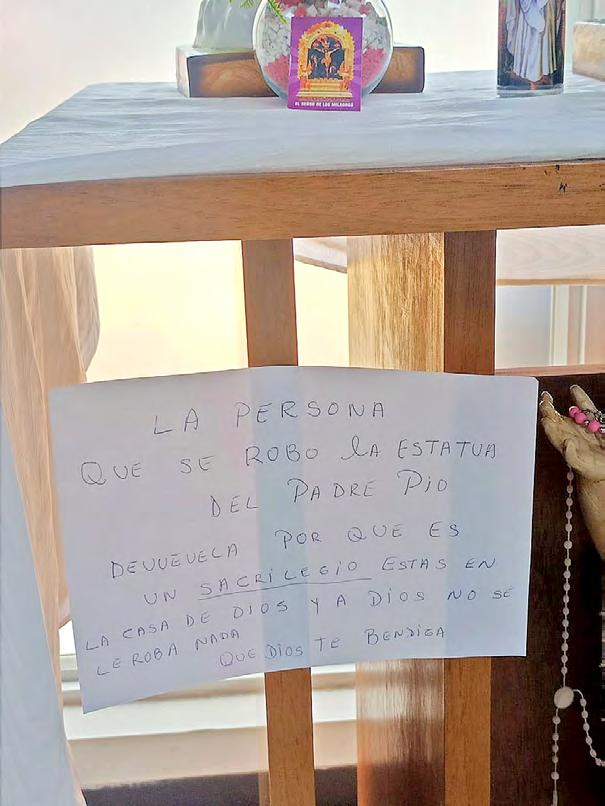 EL SEÑOR DE LOS MILAGROS
LA PERSONA
QUE SE ROBO la ESTATUA
DEL PADRE PIO
DEVUEVELA POR QUE ES
UN SACRILEGIO ESTAS EN
LA CASA DE DIOS Y A DIOS NO SE
LE ROBA NADA
QUE DIOS TE BENDIGA